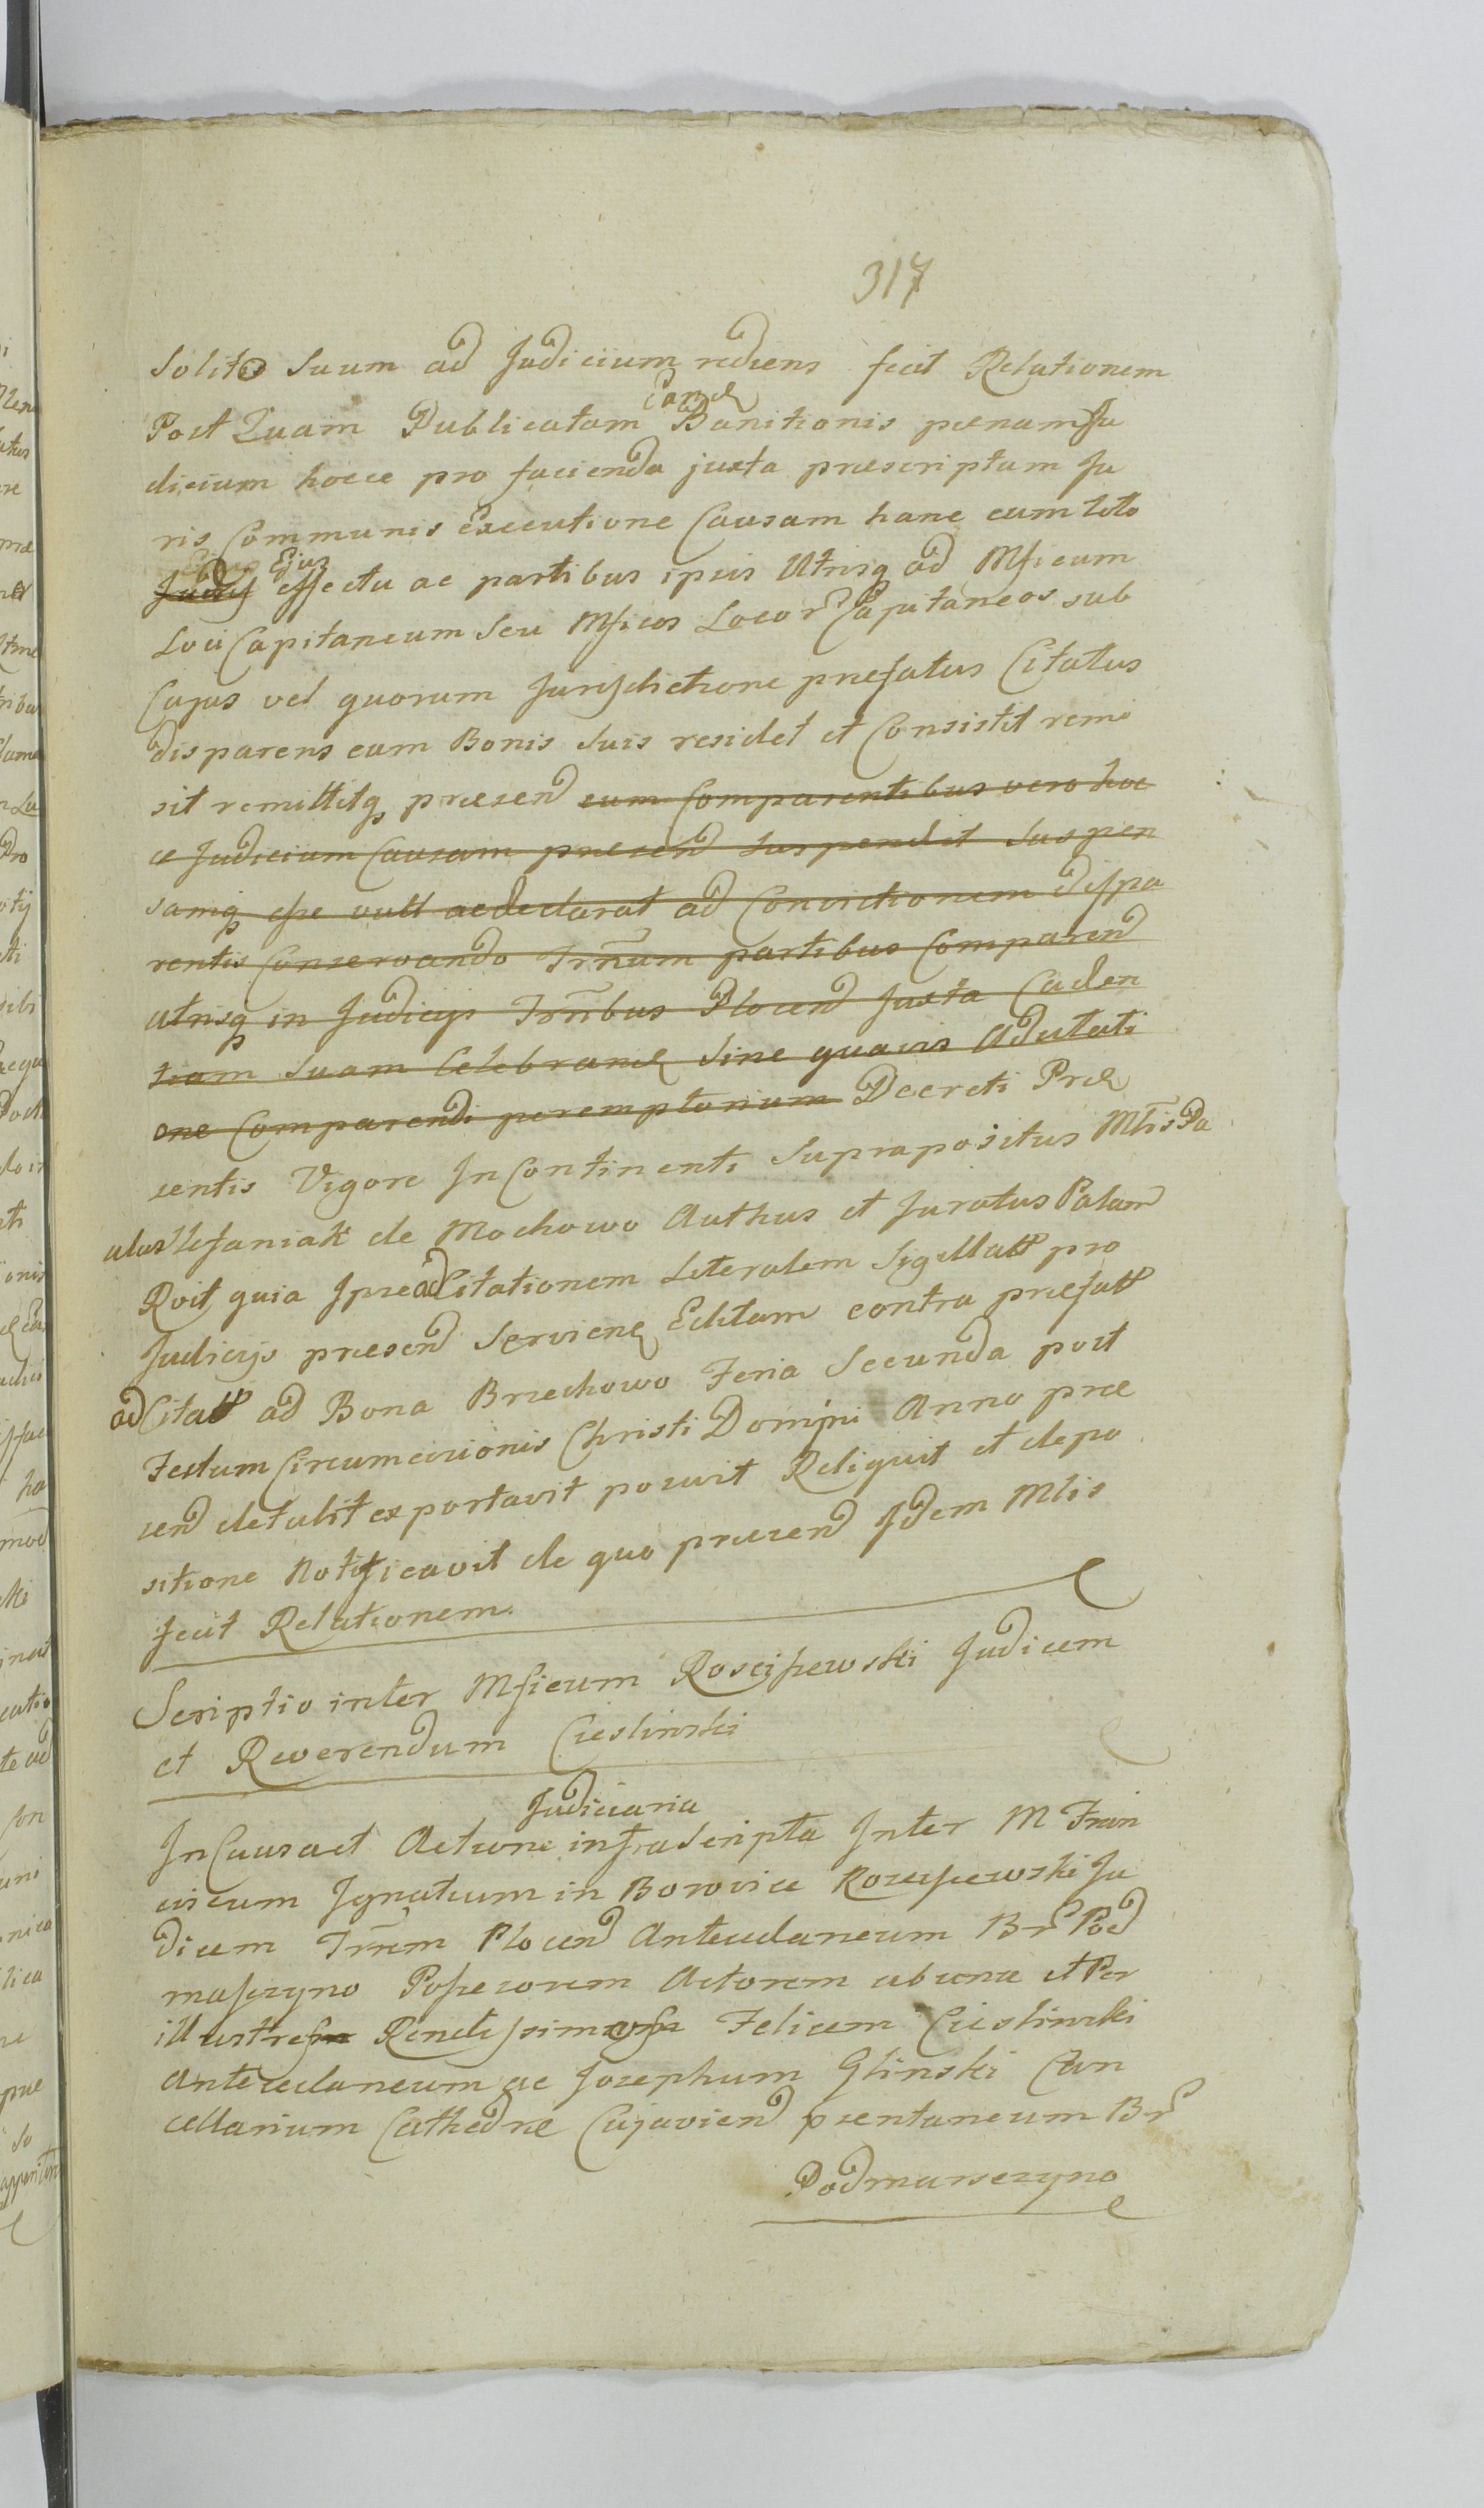 317
Solito Suum ad Judicium rediens fecit Relationem
Post Quam Publicatam Eand Banitionis poenam Ju
dicium hocce pro facienda juxta prescriptum Ju
ris Communis Executione Causam hanc cum toto
Judij Ejus effectu ac partibus ipsis Utrisq ad Mficum
Loci Capitaneum Seu Mficos Locor Capitaneos sub
Cujus vel quorum Jurisdictione prefatus Citatus
disparens cum Bonis Suis residet et Consistit remi
sit remittitq presend cum Comparentibus vero hoc
ce Judicium Causam presend Suspendit Suspen
samq esse vult ac declarat ad Convictionem dispa
rentis Conservando Trnum partibus Comparend
utrisq in Judicijs Trribus Plocend Juxta Caden
tiam Suam Celebrand Sine quavis Adcitati
one Comparendi peremptorium Decreti Præ
sentis Vigore In Continenti Suprapositus Mlis Pa
ulus Stefaniak de Mochowo Authus et Juratus Palam
Rvit quia Ipse adCitationem Literalem Sigillatt pro
Judicijs presend Serviend Editam contra prefatt
adCitatt ad Bona Brzechowo Feria Secunda post
Festum Circumcisionis Christi Domini Anno præ
send detulit exportavit posuit Reliquit et depo
sitione Notificavit de quo presend Idem Mlis
fecit Relationem.
Scriptio inter Mficum Roscisewski Judicem
et Reverendum Cieslinski
In Causa et Actione Judiciaria infra Scripta Inter M Fran
ciscum Ignatium in Borowice Rosciszewski Ju
dicem Trrem Plocend Antecedaneum Br Pod
maszczyno Possesorem Actorem ab una et Per
illustrem Rendissimum Felicem Cieslinski
Antecedaneum ac Josephum Glinski Can
cellarium Cathedræ Cujaviend psentaneum Br
Podmarsczyno